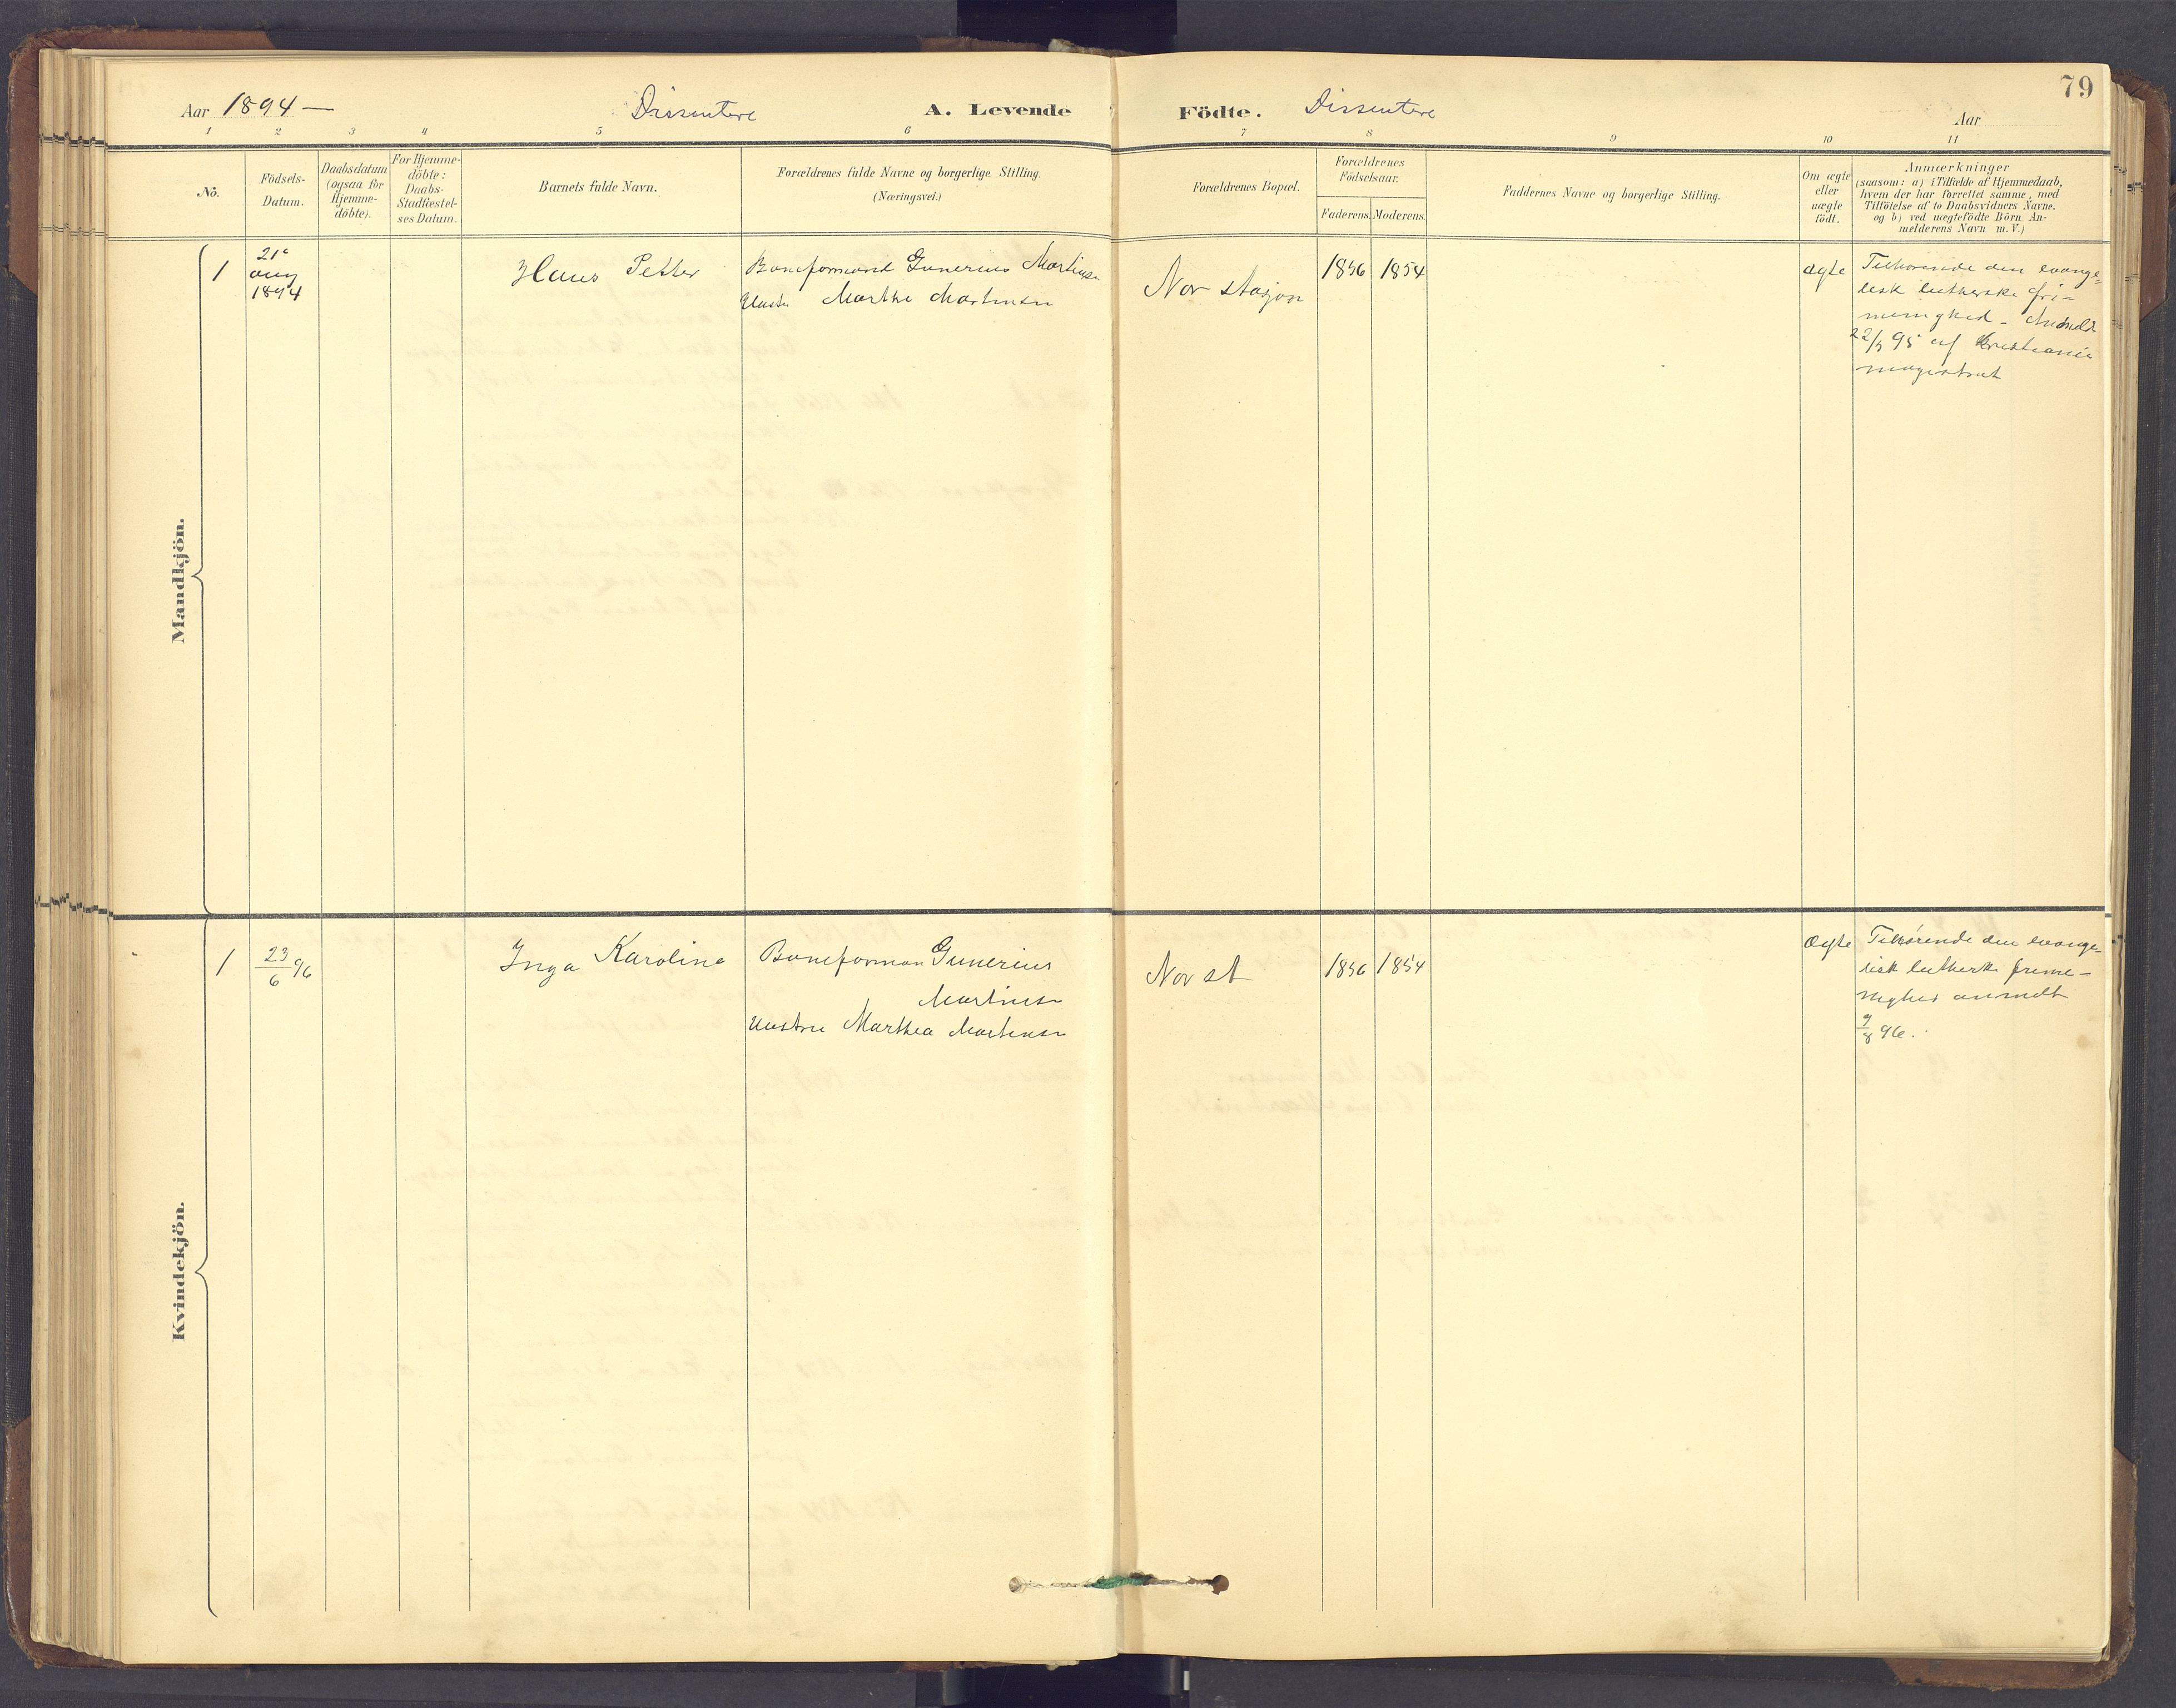 79
Aar 1894 — Dissentere A. Levende Födte. Dissentere Aar
1 2 3 4 5 6 7 8 9 10 11
No.
Födsels-
Datum.
Daabsdatum
(ogsaa for
Hjemme-
döbte).
For Hjemme-
döbte:
Daabs-
Stadfæstel-
ses Datum.
Barnets fulde Navn.
Forældrenes fulde Navne og borgerlige Stilling.
(Næringsvei.)
Forældrenes Bopæl.
Forældrenes
Födselsaar.
Faderens. Moderens.
Faddernes Navne og borgerlige Stilling.
Om ægte
eller
uægte
födt.
Anmærkninger
(saasom: a) i Tilfælde af Hjemmedaab,
hvem der har forrettet samme, med
Tilföielse af to Daabsvidners Navne.
og b) ved uægtefödte Börn An-
melderens Navn m. V.)
Mandkjön.
1
21de
aug
1894
Hans Petter
Baneformand Gunerius Martinsen
Hustru Marthe Martinsen
Nor stasjon
1856 1854
ægte
Tilhørende den evange-
lisk lutherske fri-
menighed - Anmeldt
22/3 95 af Kristiania
magistrat
Kvindekjön.
1
23/6 96
Inga Karoline
Baneforman Gunerius
Martinsen
Hustru Marthea Martinsen
Nor st
1856 1854
Ægte
Tilhørende den evange-
lisk luthersk frime-
nighed anmeldt
9/8 96.